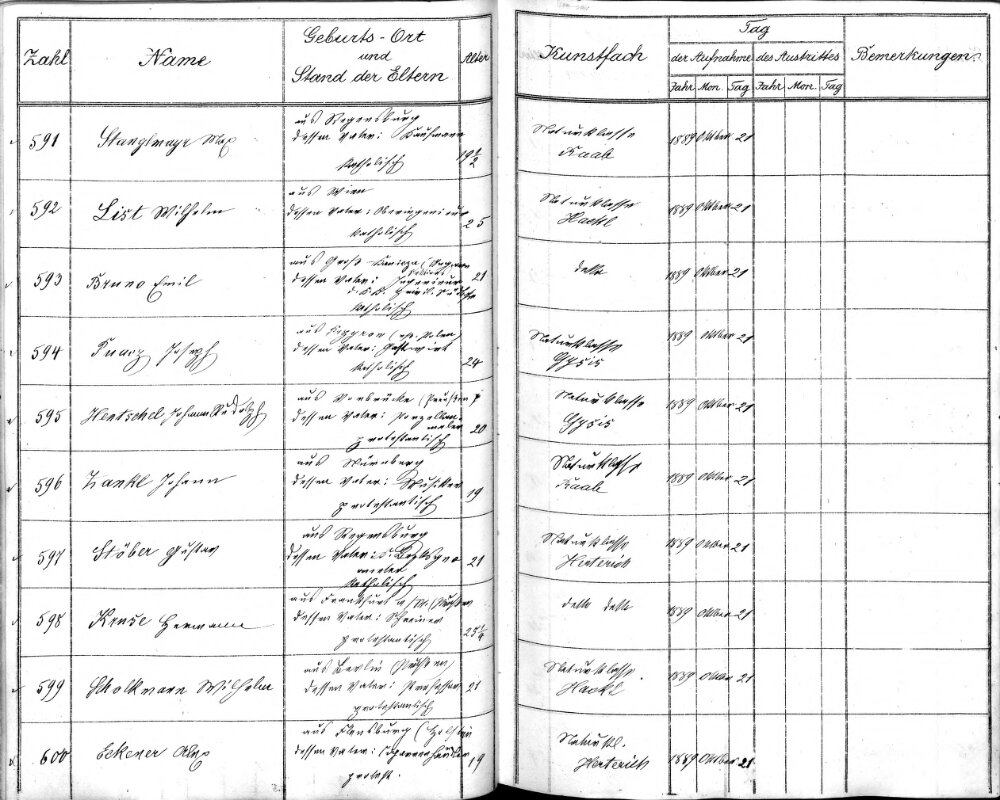 Zahl Name Geburts-Ort und Stand der Eltern Alter Kunstfach Tag der Aufnahme des Austrittes Bemerkungen
Jahr Mon. Tag Jahr Mon. Tag
591 Stanglmayr Max
aus Regensburg
dessen Vater: Kaufmann
katholisch
19 1/2
Naturklasse
Raab
1889 Oktober 21
592 List Wilhelm
aus Wien
dessen Vater: Oberingenieur
katholisch
25
Naturklasse
Hackl
1889 Oktober 21
593 Bruno Emil
aus Groß-Kanizsa
dessen Vater: Ingenieur
katholisch
21
detto
1889 Oktober 21
594 Joseph
aus
dessen Vater: Gastwirt
katholisch
24
Naturklasse
Gysis
1889 Oktober 21
595 Hentschel Johann Rudolph
aus (Preußen)
dessen Vater: Porzellan-
maler
protestantisch
20
Naturklasse
Gysis
1889 Oktober 21
596 Zankl Johann
aus Nürnberg
dessen Vater: Musiker
protestantisch
19
Naturklasse
Raab
1889 Oktober 21
597 Stöber Gustav
aus Regensburg
dessen Vater: Bezirksgeo-
meter
katholisch
21
Naturklasse
Herterich
1889 Oktober 21
598 Kruse Hermann
aus Frankfurt a/M. (Preußen
dessen Vater: Schreiner
protestantisch
25 1/4
detto detto
1889 Oktober 21
599 Scholkmann Wilhelm
aus Berlin (Preußen)
dessen Vater: Professor
protestantisch
21
Naturklasse
Hackl
1889 Oktober 21
600 Eckener Alex
aus Flensburg (Holstein
dessen Vater:
protest.
19
Naturkl.
Herterich
1889 Oktober 21